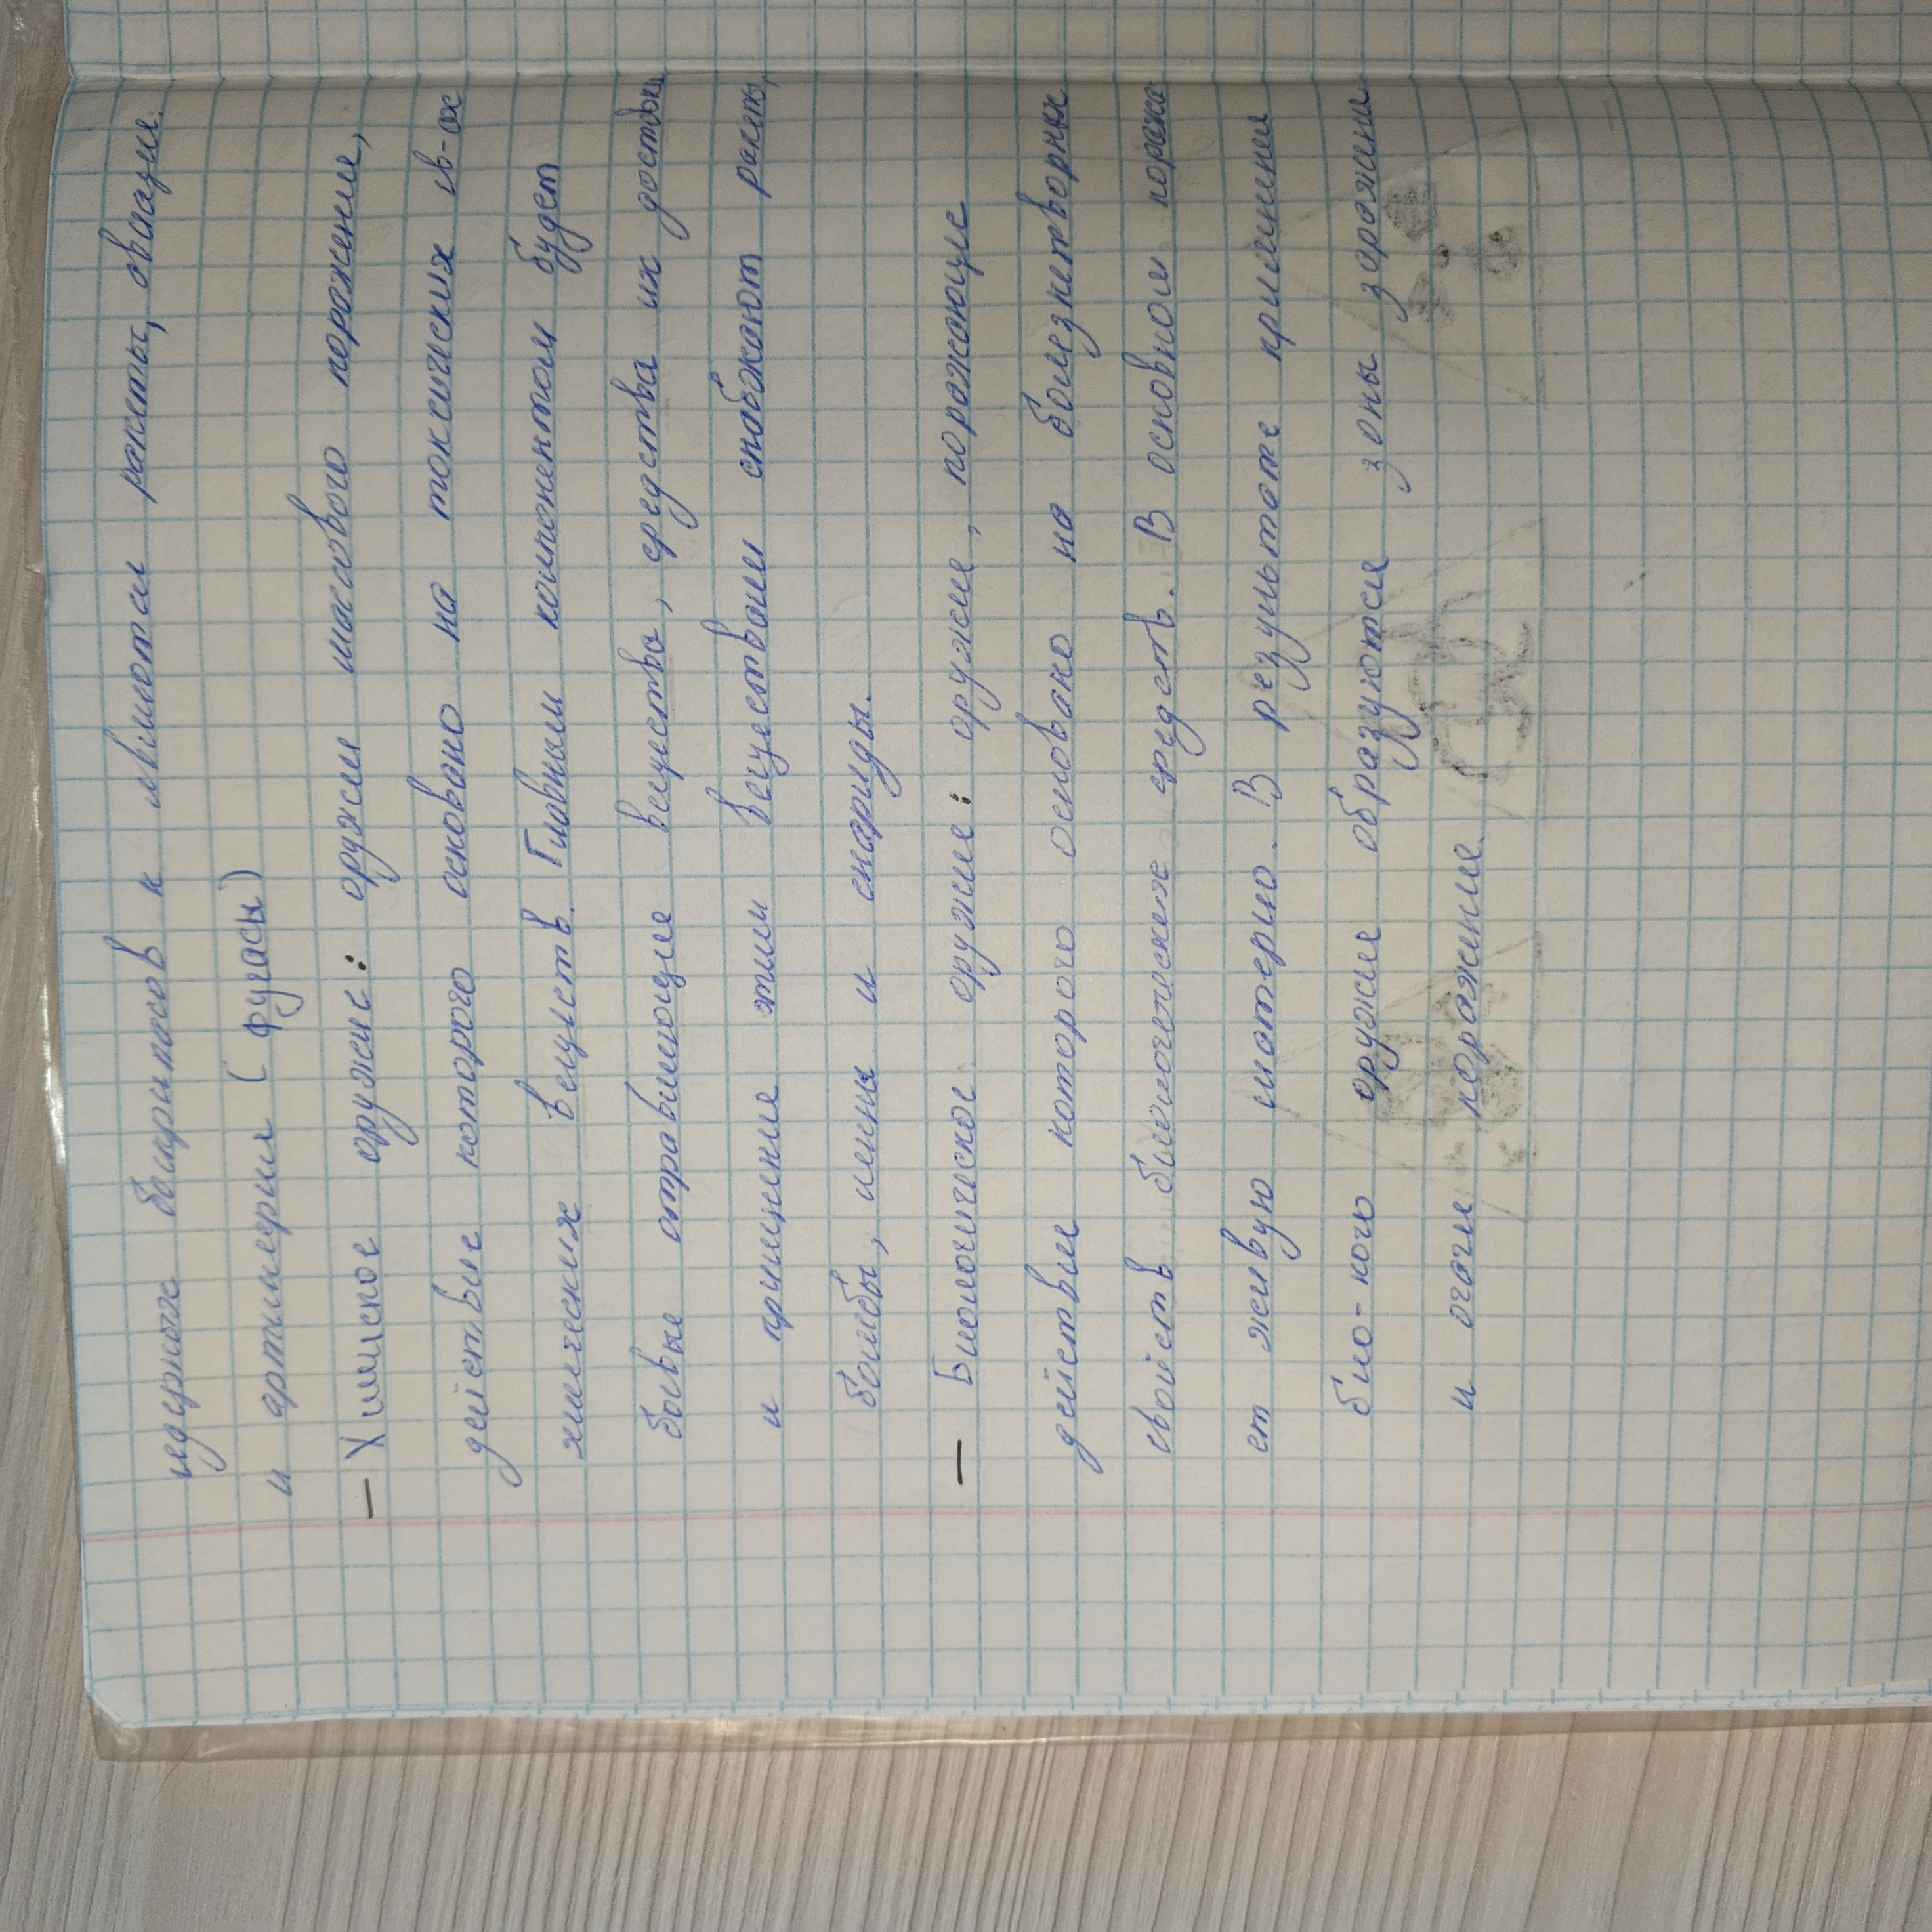 ядерных боеприпасов к являются ракеты, авиация
и артилерия (фугасы)
– Химиское оружие: оружие массового поражение,
действие которого основано на токсических св-ах
химических веществ. Главным компонентом будет
боевые отравляющие вещества, средства их достав
и применение этим веществами снабжают ракеты,
бомбы, мены и снаряды.
– Биологическое оружие: оружие, поражающие
действие которого основано на болезнетворных
свойств биологических средств. В основном поража
ет живую материю. В результате применения
био-кого оружие образуются зоны заражени
и очаги поражение.